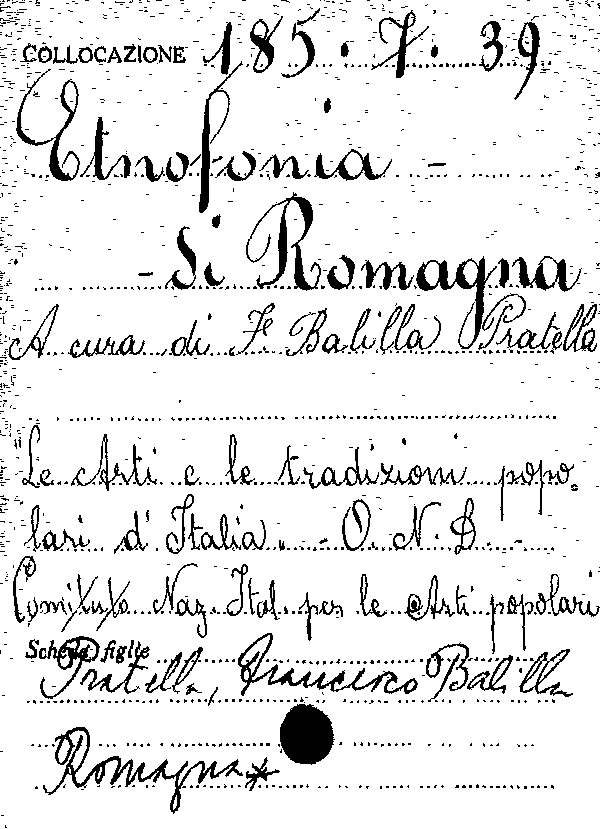 COLLOCAZIONE 185. 7. 39
Etnofonia -
- di Romagna
A cura di F. Balilla Pratella
"Le Arti e le tradizioni popo-
lari d'Italia. - O. N. D. -
Naz. Ital. per le Arti popolari
Schede figlie
Pratella, Francesco Balilla
Romagna*